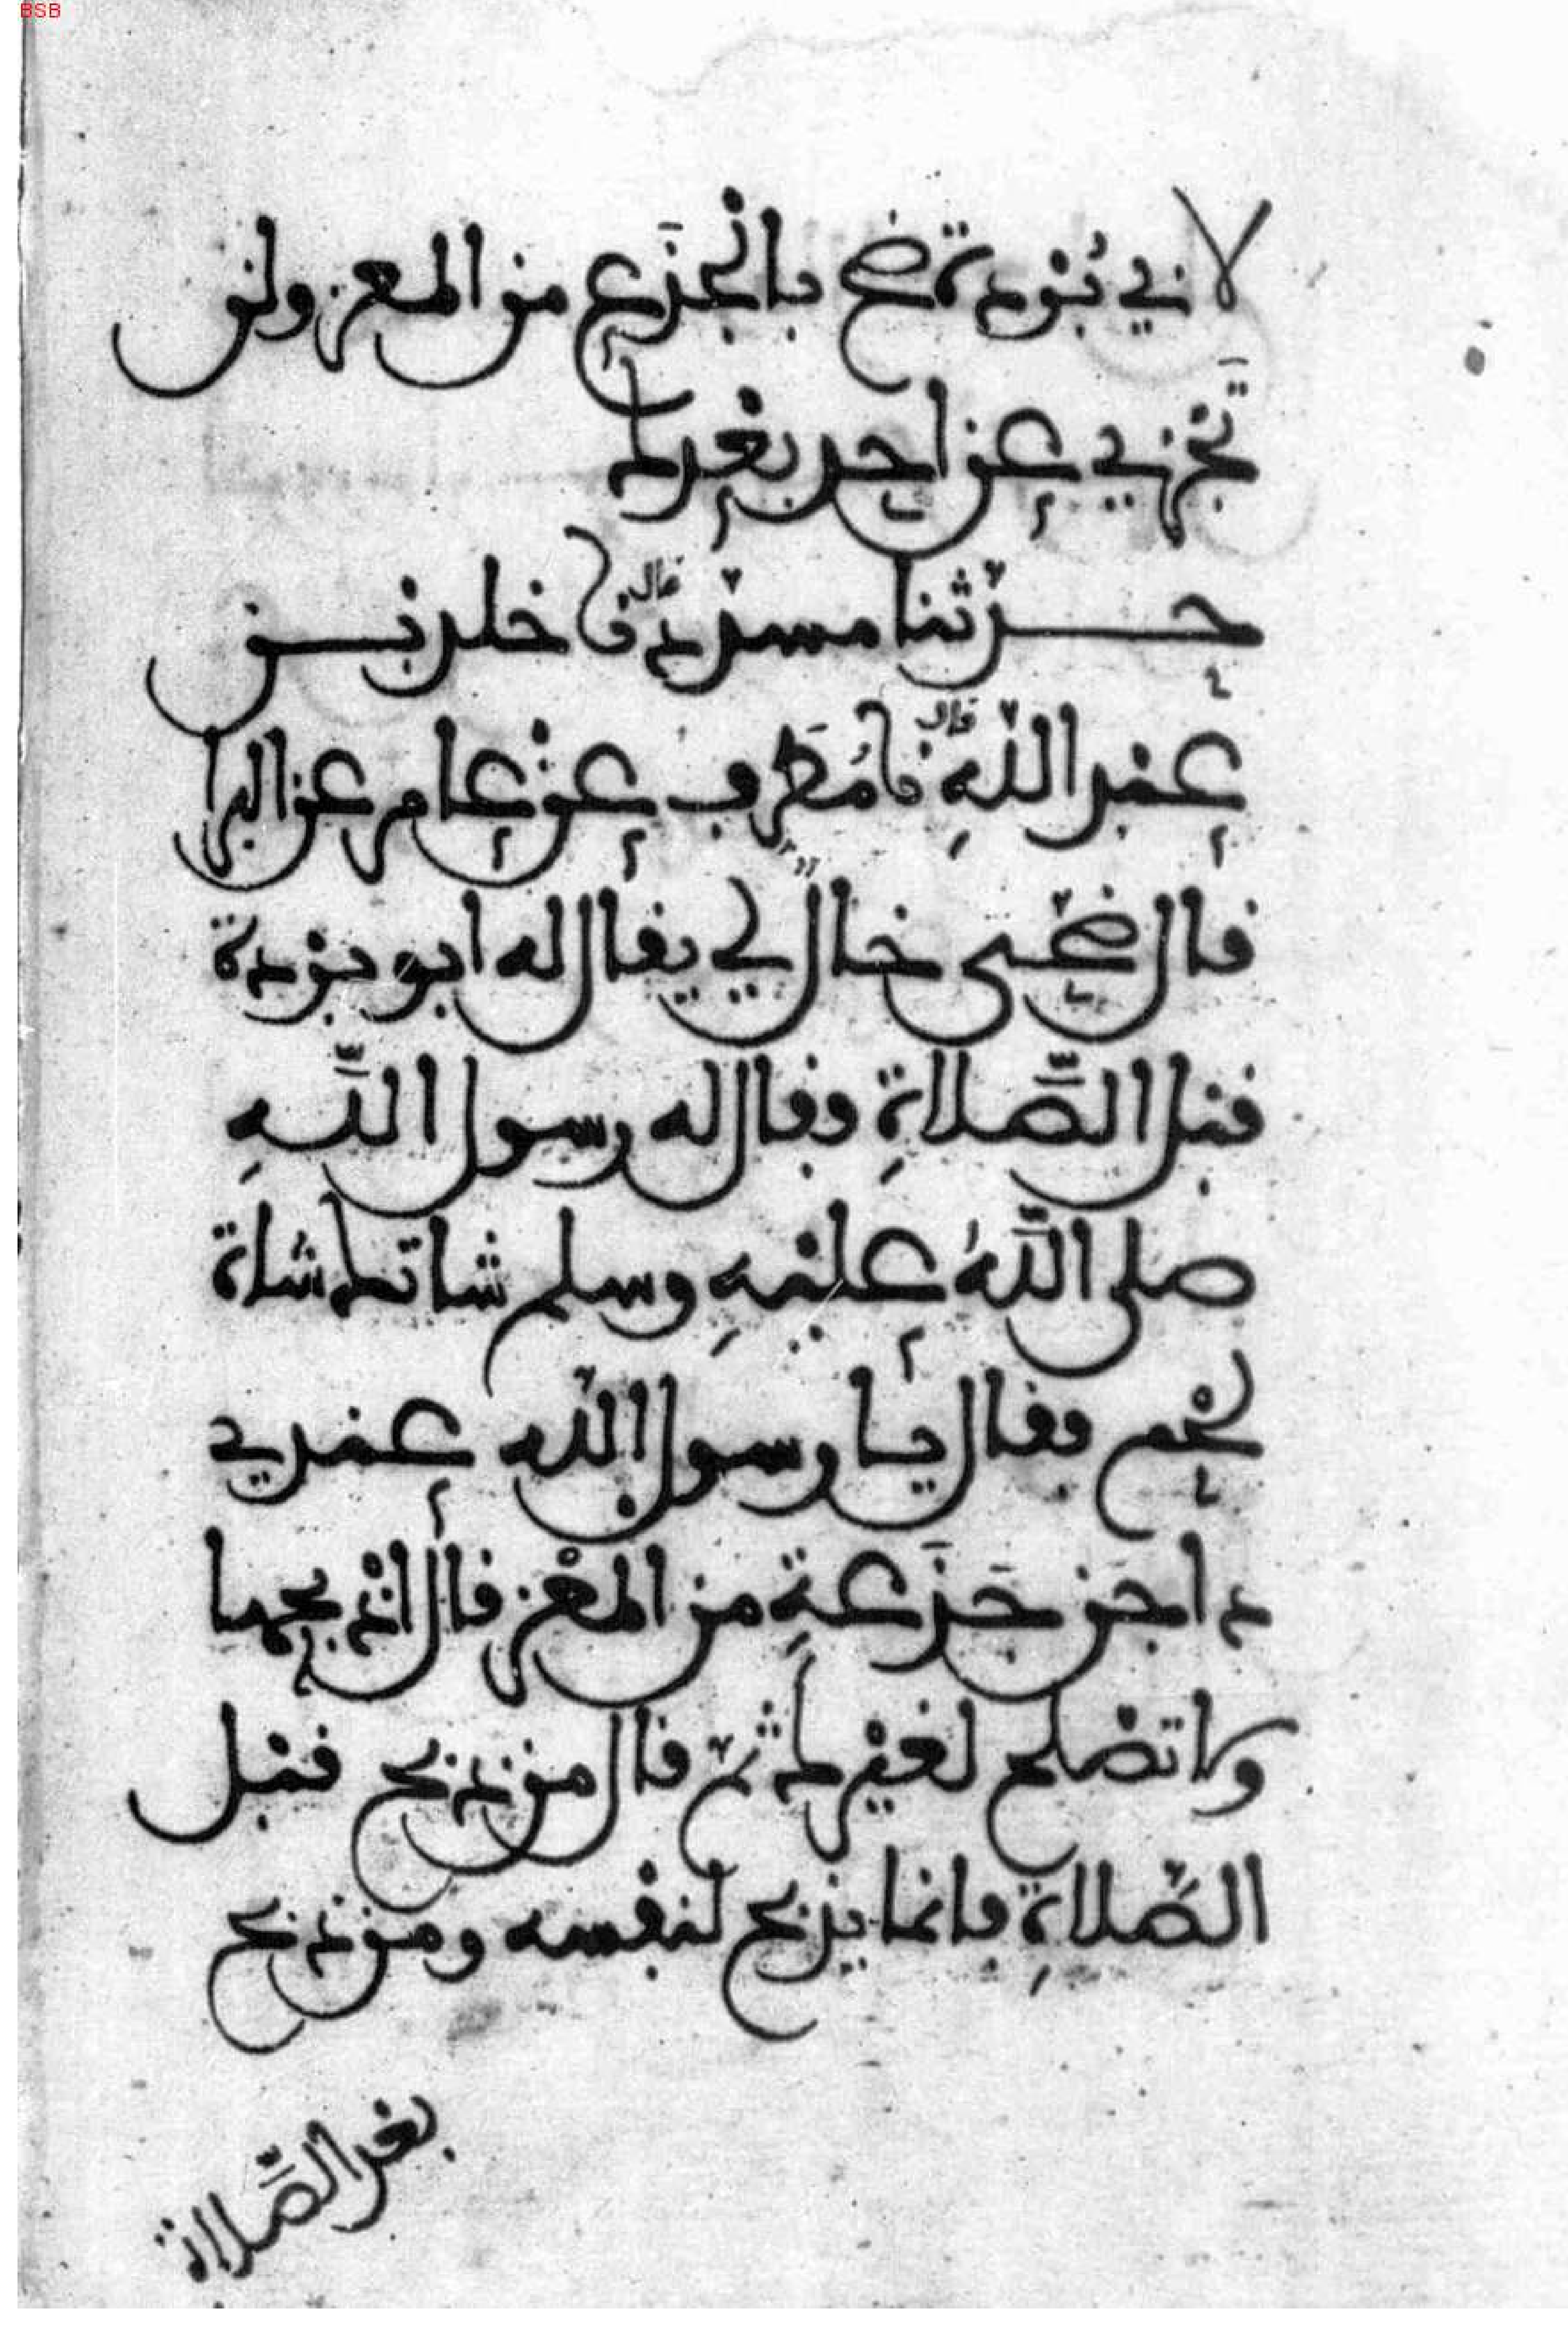 BSB
لابي بُرْدة ضح بالجَذَع من المعز ولن
تَجزي عن احد بعْدك
حدّثنا مسدّد قال نا خلد بن
عبد اللهِ قال نا مُطَرِّف عنْ عامر عن البرا
قال ضحّى خالٌ لي يقال له ابو بُرْدة
قبْل الصَّلاةِ فقال له رسول اللَّهِ
صلى اللَّهُ علَيْهِ وسلم شاتك شاة
لحْم فقال يا رسول اللّه عندي
داجن جَذَعةٍ من المعْز قال اذْبحها
ولا تصْلح لغيْرك ثمّ قال منْ ذبح قبْل
الصّلاةِ فانما يذبح لنفْسه ومنْ ذبح
بعْد الصَّلاة